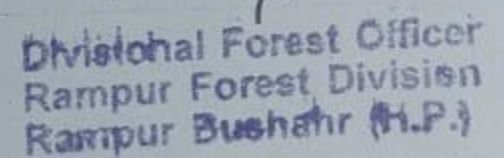 Divisional Forest Officer
Rampur Forest Division
Rampur Bushahr (H.P.)